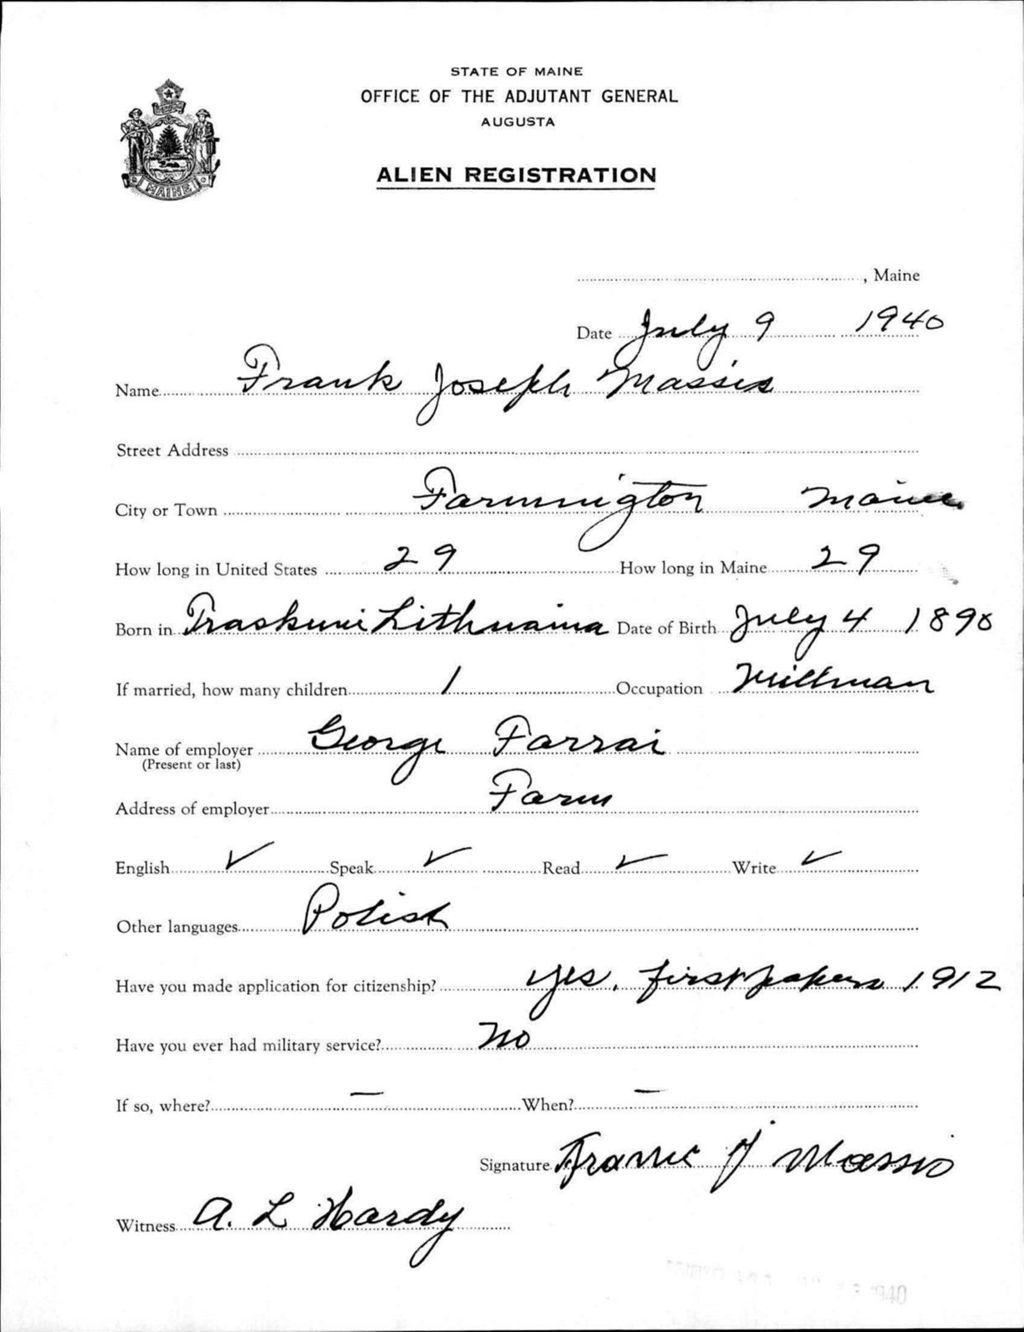 STATE OF MAINE
OFFICE OF THE ADJUTANT GENERAL
AUGUSTA
MAINE
ALIEN REGISTRATION
, Maine
Date July 9 1940
Name Frank Joseph Massis
Street Address
City or Town Farmington Maine
How long in United States 29 How long in Maine 29
Born in Traskuni Lithuaina Date of Birth July 4 1890
If married, how many children 1 Occupation Millman
Name of employer George Farrai
(Present or last)
Address of employer Farm
English ✓ Speak ✓ Read ✓ Write ✓
Other languages Polish
Have you made application for citizenship? yes, first papers 1912
Have you ever had military service? No
If so, where? — When? —
Signature J Massis
Witness A. L Hardy
1940